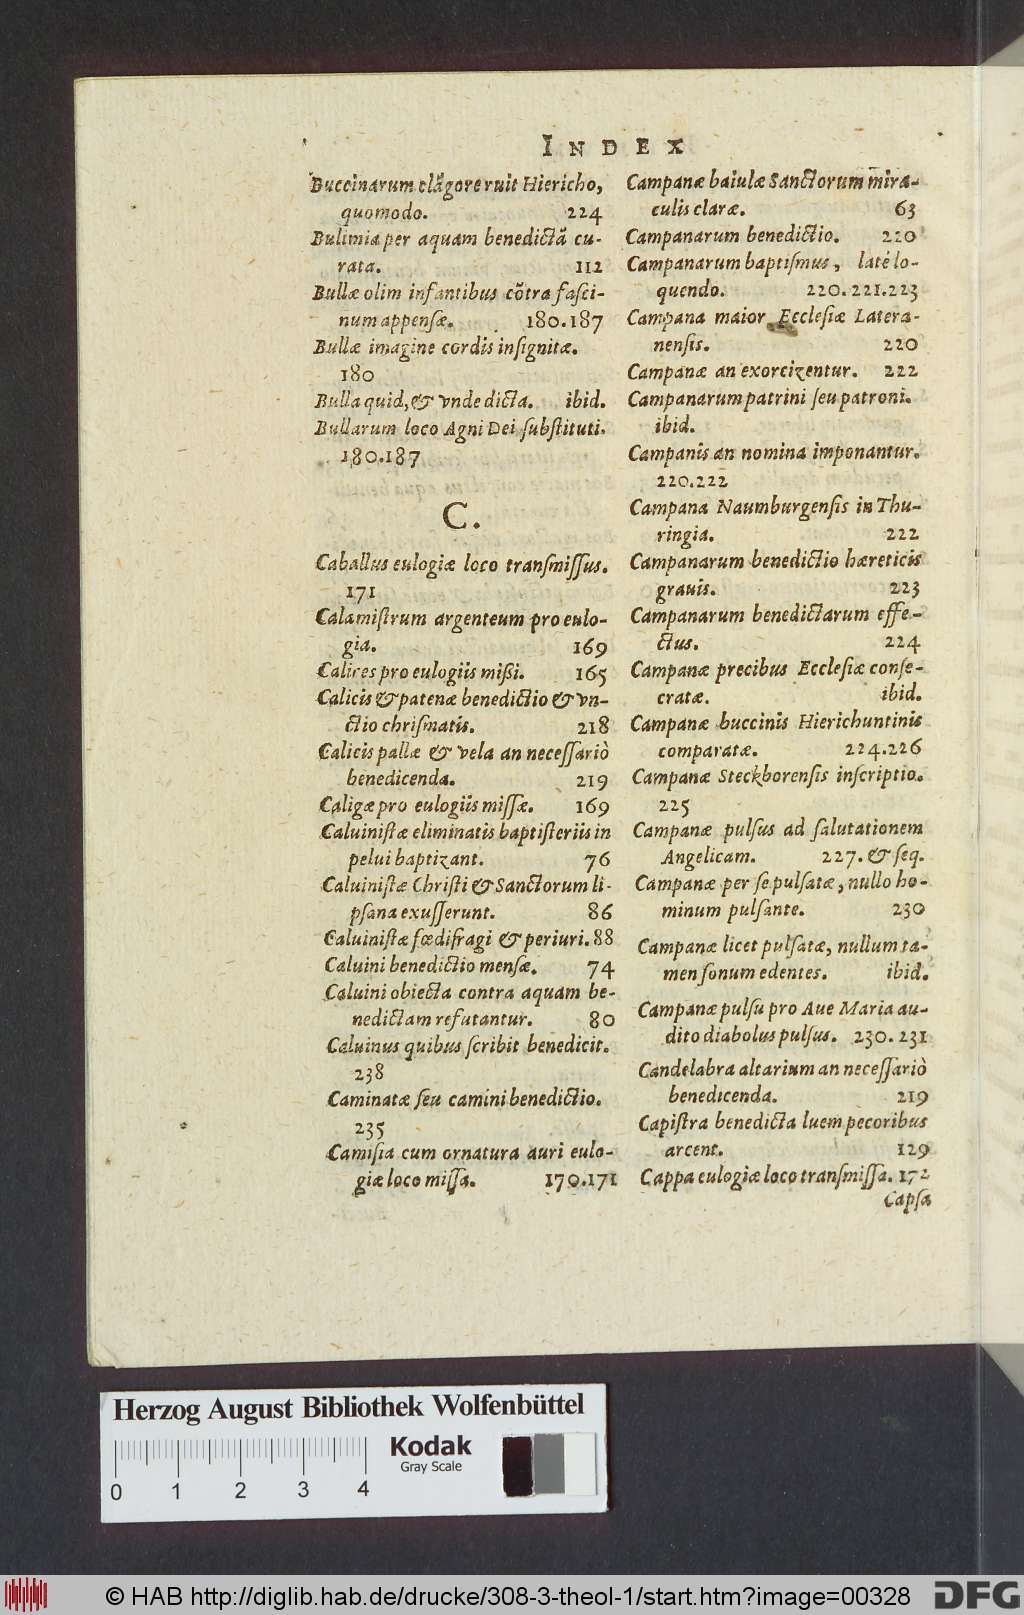 INDEX
Buccinarum clãgore ruit Hiericho,
quomodo. 224
Bulimia per aquam benedictã cu-
rata. 112
Bullæ olim infantibus cõtra fasci-
num appensæ. 180.187
Bullæ imagine cordis insignitæ.
180
Bulla quid, & vnde dicta. ibid.
Bullarum loco Agni Dei substituti.
180.187
C.
Caballus eulogiæ loco transmissus.
171
Calamistrum argenteum pro eulo-
gia. 169
Calices pro eulogiis mißi. 165
Calicis & patenæ benedictio & vn-
ctio chrismatis. 218
Calicis pallæ & vela an necessariò
benedicenda. 219
Caligæ pro eulogiis missæ. 169
Caluinistæ eliminatis baptisteriis in
pelui baptizant. 76
Caluinistæ Christi & Sanctorum li-
psana exusserunt. 86
Caluinistæ fœdifragi & periuri. 88
Caluini benedictio mensæ. 74
Caluini obiecta contra aquam be-
nedictam refutantur. 80
Caluinus quibus scribit benedicit.
238
Caminatæ seu camini benedictio.
235
Camisia cum ornatura auri eulo-
giæ loco missa. 170.171
Campanæ baiulæ Sanctorum mira-
culis claræ. 63
Campanarum benedictio. 220
Campanarum baptismus, latè lo-
quendo. 220.221.223
Campana maior Ecclesiæ Latera-
nensis. 220
Campanæ an exorcizentur. 222
Campanarum patrini seu patroni.
ibid.
Campanis an nomina imponantur.
220.222
Campana Naumburgensis in Thu-
ringia. 222
Campanarum benedictio hæreticis
grauis. 223
Campanarum benedictarum effe-
ctus. 224
Campanæ precibus Ecclesiæ conse-
cratæ. ibid.
Campanæ buccinis Hierichuntinis
comparatæ. 224.226
Campanæ Steckborensis inscriptio.
225
Campanæ pulsus ad salutationem
Angelicam. 227. & seq.
Campanæ per se pulsatæ, nullo ho-
minum pulsante. 230
Campanæ licet pulsatæ, nullum ta-
men sonum edentes. ibid.
Campanæ pulsu pro Aue Maria au-
dito diabolus pulsus. 230. 231
Candelabra altarium an necessariò
benedicenda. 219
Capistra benedicta luem pecoribus
arcent. 129
Cappa eulogiæ loco transmissa. 172
Capsa
Herzog August Bibliothek Wolfenbüttel
Kodak
Gray Scale
0 1 2 3 4
© HAB http://diglib.hab.de/drucke/308-3-theol-1/start.htm?image=00328
DFG